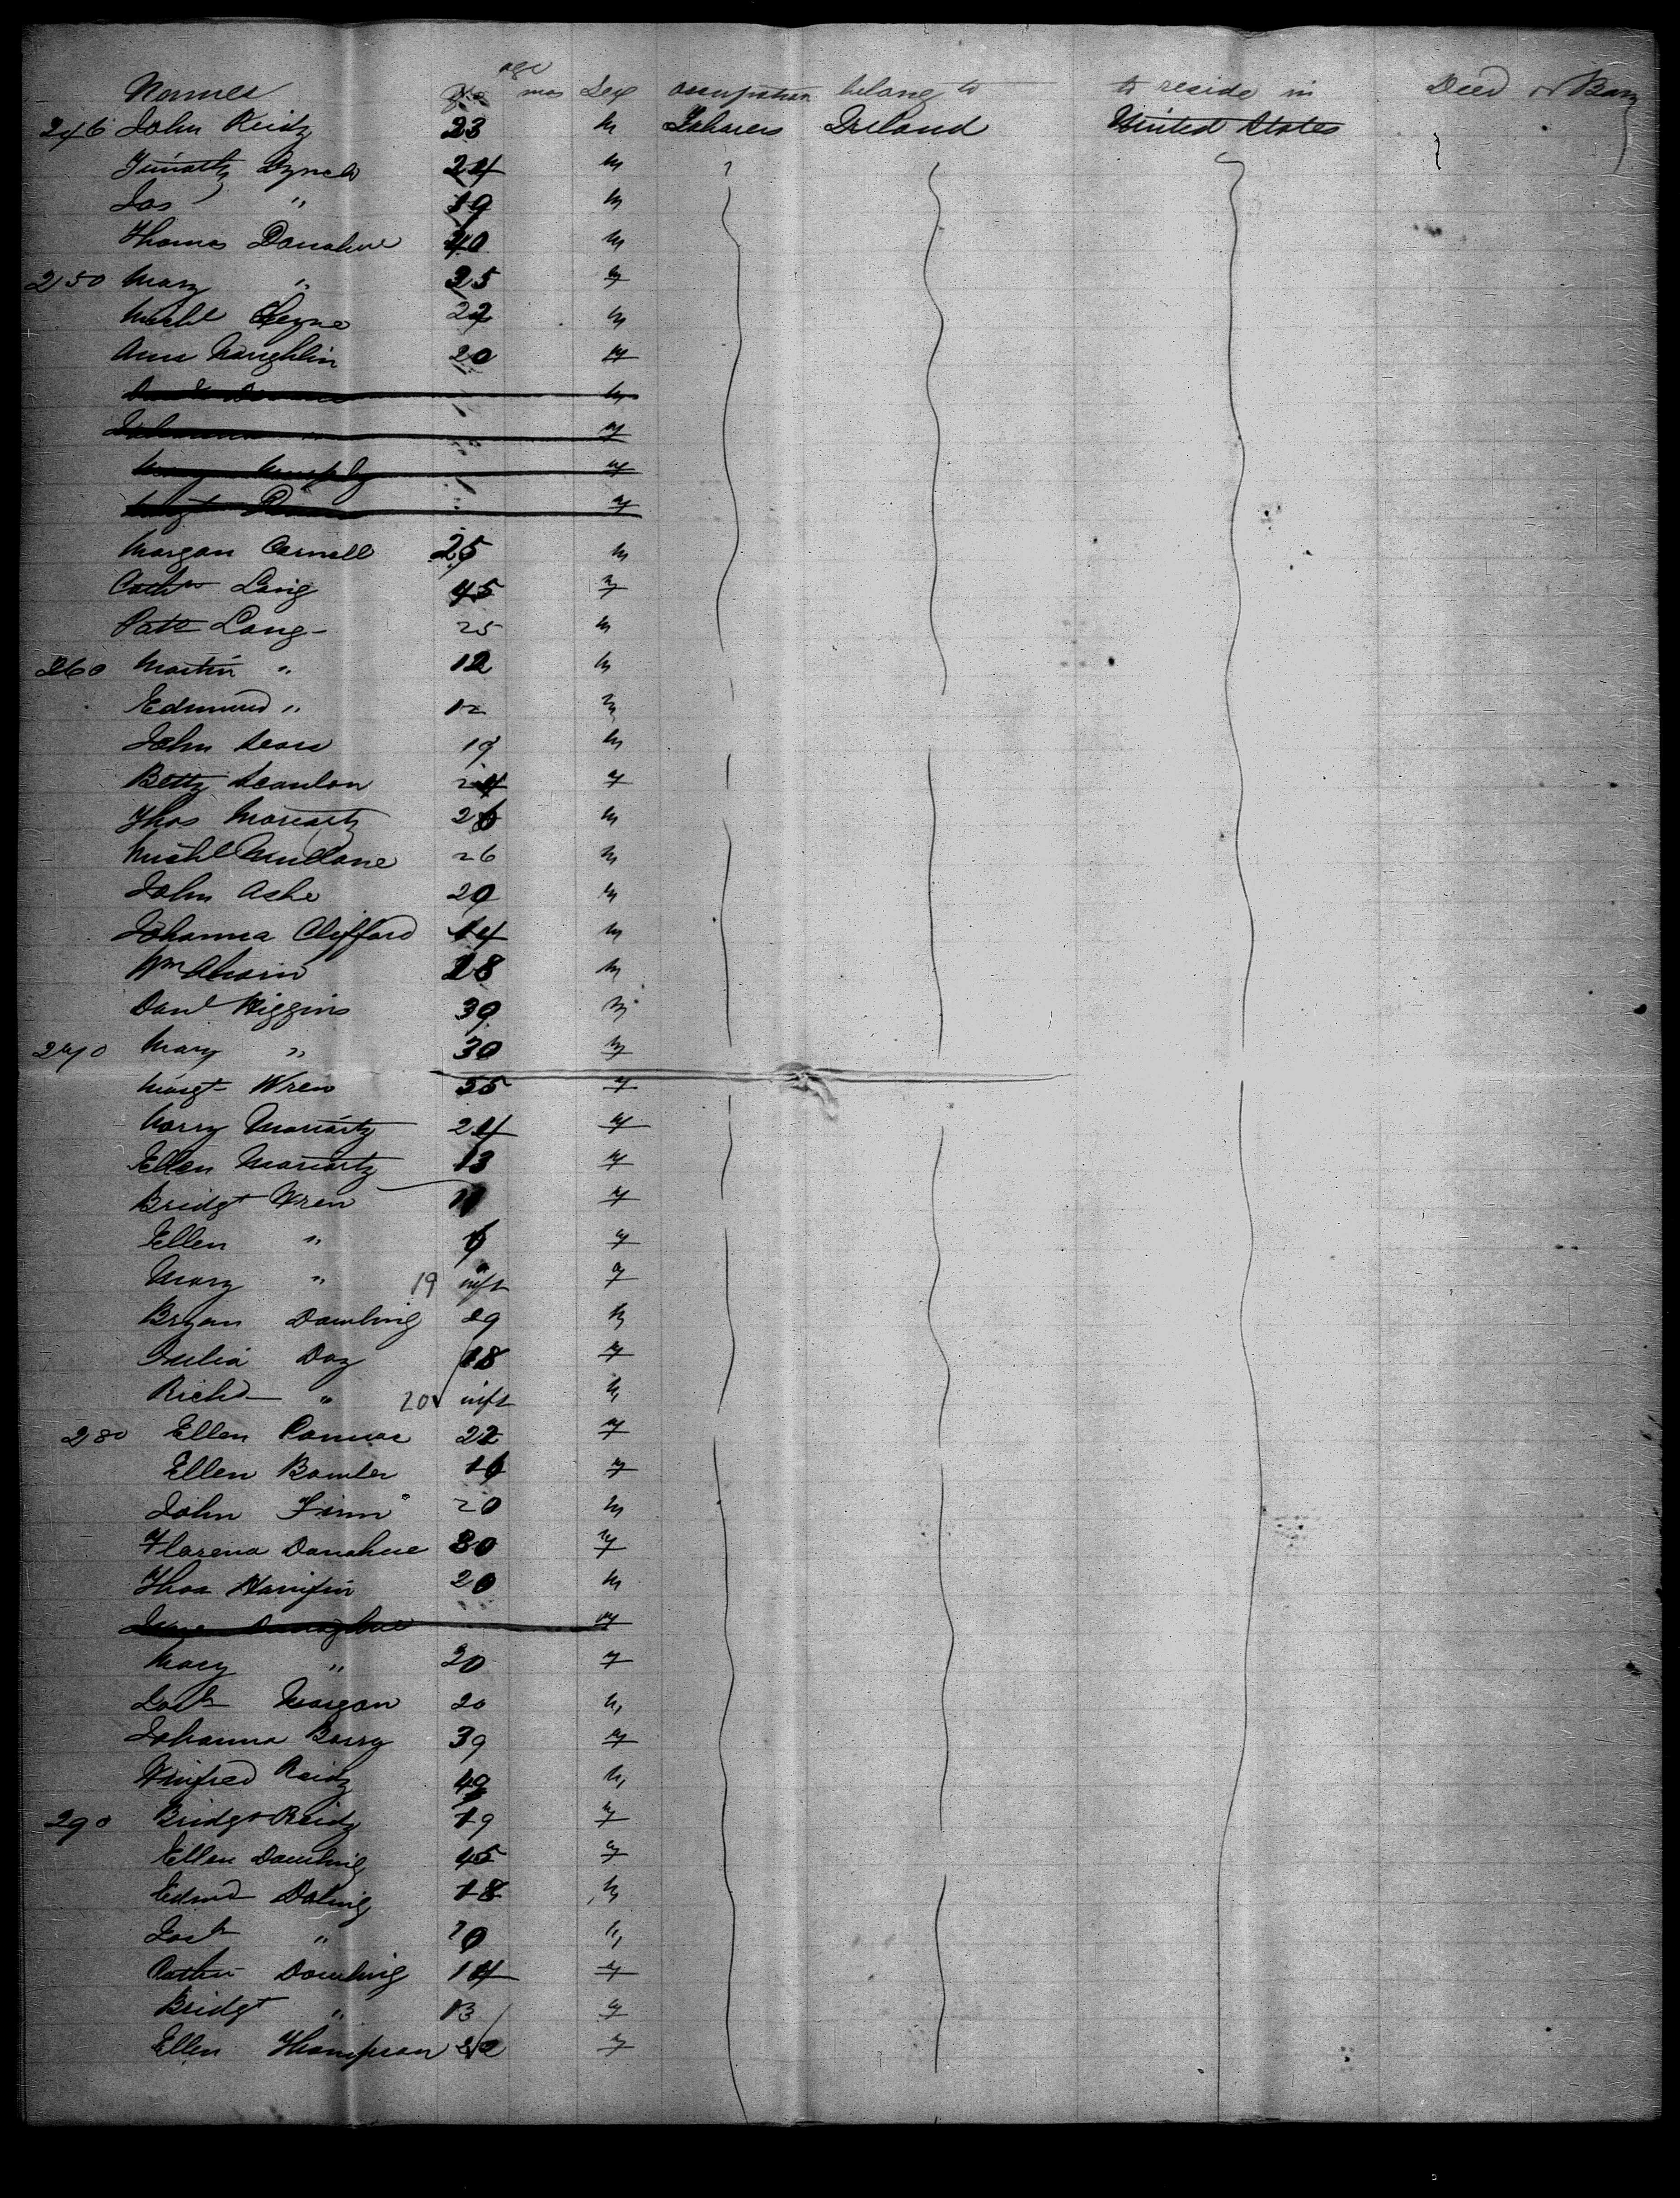 age
Names mos Sex occupation belong to to reside in Died
246 John Reidy 23 m Laborers Ireland United States
Timothy Lynch 24 m
Jas " 19 m
Thomas Donahue 40 m
250 Mary " 35 f
Michl 22 m
Ann Naughlin 20 f
m
Johanna " f
Murphy f
f
Morgan Connell 25 m
Cath Laing 45 f
Patk Lang 25 m
260 Martin " 12 m
Edmund " 12 m
John Sears 19 m
Betty Scanlon 24 f
Thos Moriarty 26 m
Michl Mullane 26 m
John Ashe 29 m
Johanna Clifford 14 m
Wm Ahern 28 m
Danl Higgins 39 m
270 Mary " 30 f
Margt Wren 35 f
Norry Moriarty 24 f
Ellen Moriarty 13 f
Bridgt Wren 11 f
Ellen " 6 f
Mary " 19 inft f
Bryan Dowling 29 m
Julia Day 18 f
Richd " 20 inft m
280 Ellen Connor 22 f
Ellen Bowler 16 f
John Finn 20 m
Florena Donahue 30 f
Thos Hanifin 20 m
Donaghue f
Mary " 20 f
Morgan 20 m
Johanna Barry 39 f
Winfred Reidy 49 m
290 Bridgt Reidy 19 f
Ellen Dowling 45 f
Edmd Doling 18 m
" m
Dowling 14 f
Bridgt " 13 f
Ellen Thompson f